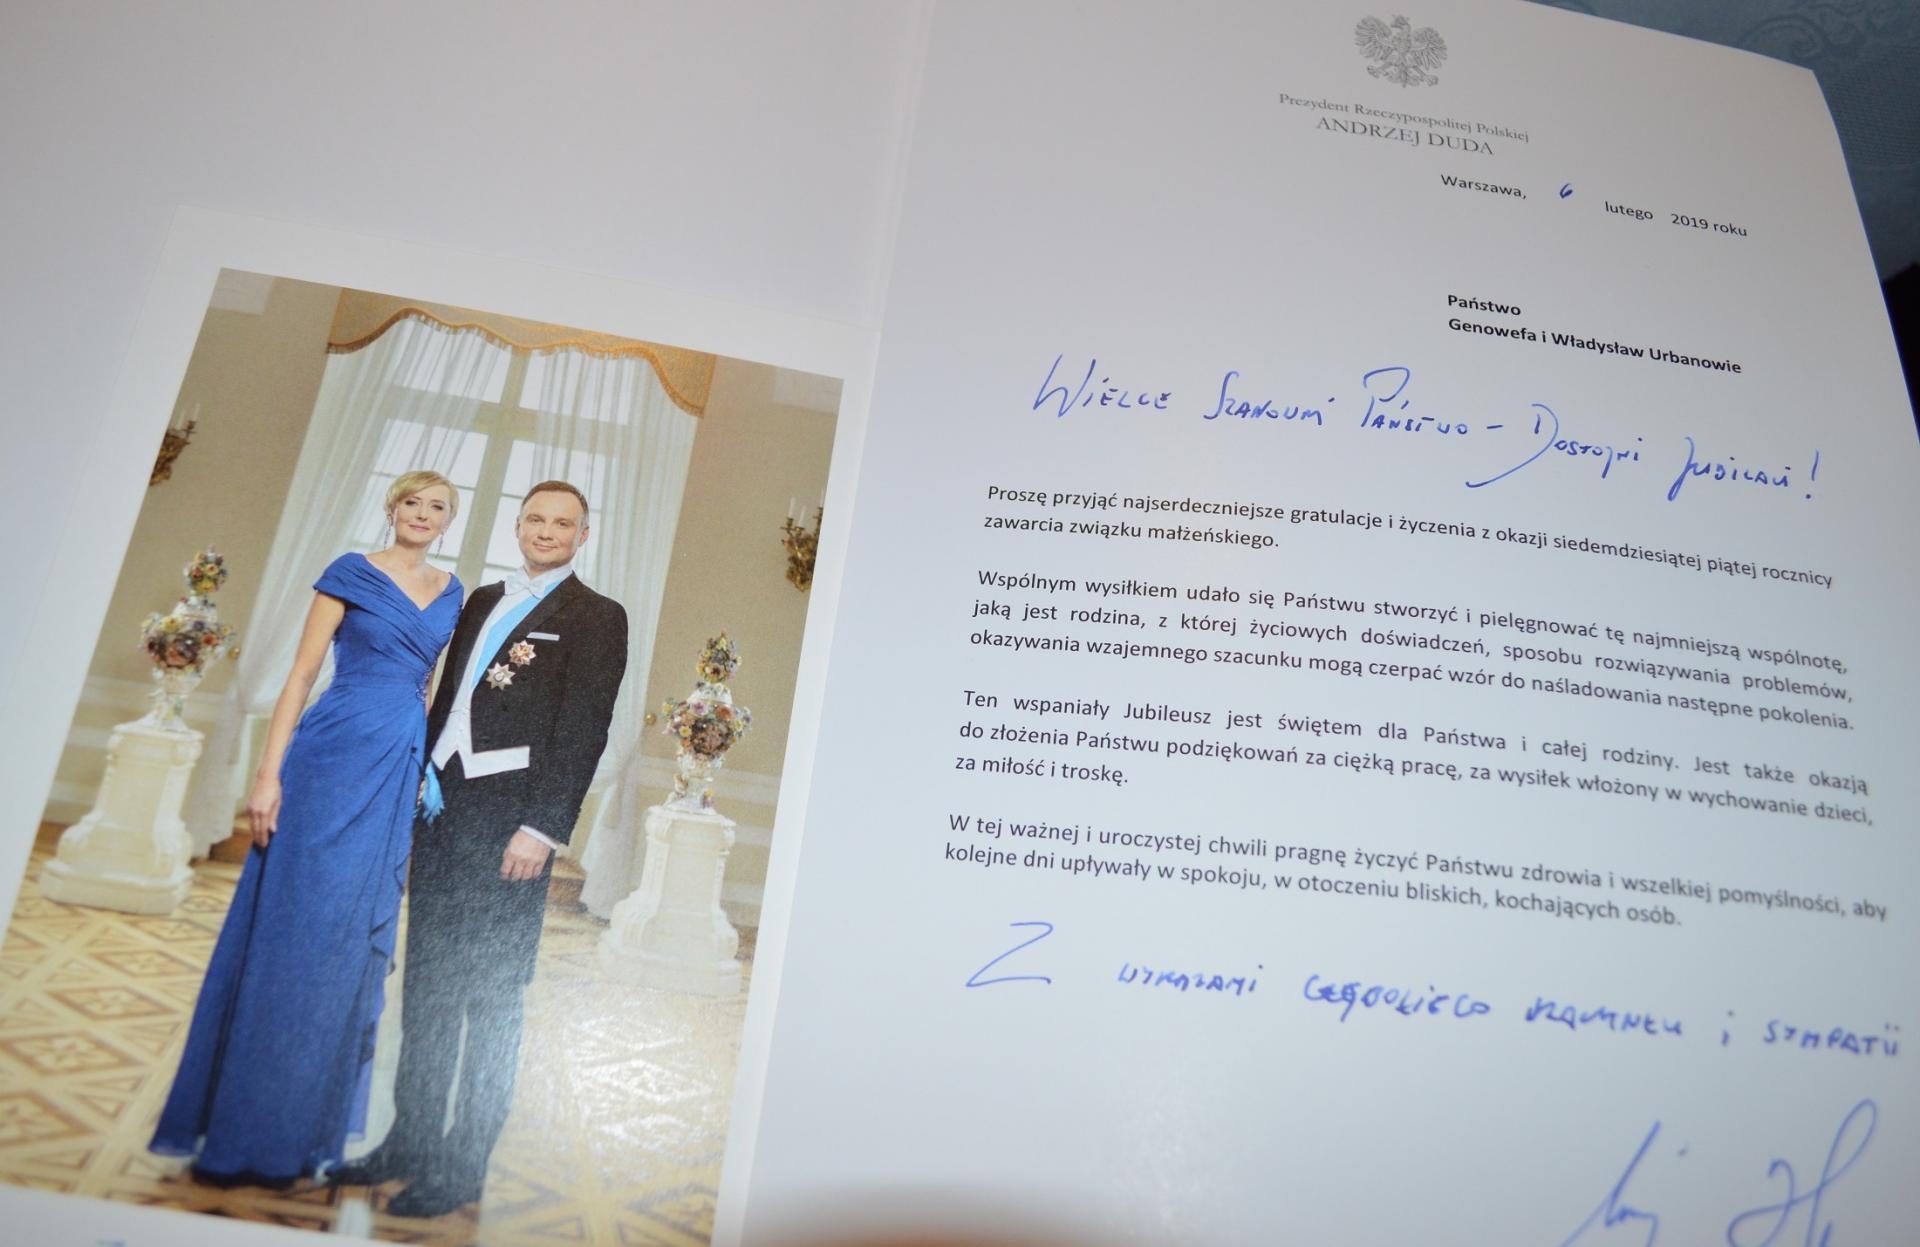 Prezydent Rzeczypospolitej Polskiej
ANDRZEJ DUDA
Warszawa, 6 lutego 2019 roku
Państwo
Genowefa i Władysław Urbanowie
WIELCE SZANOWNI PAŃSTWO – DOSTOJNI JUBILACI!
Proszę przyjąć najserdeczniejsze gratulacje i życzenia z okazji siedemdziesiątej piątej rocznicy
zawarcia związku małżeńskiego.
Wspólnym wysiłkiem udało się Państwu stworzyć i pielęgnować tę najmniejszą wspólnotę,
jaką jest rodzina, z której życiowych doświadczeń, sposobu rozwiązywania problemów,
okazywania wzajemnego szacunku mogą czerpać wzór do naśladowania następne pokolenia.
Ten wspaniały Jubileusz jest świętem dla Państwa i całej rodziny. Jest także okazją
do złożenia Państwu podziękowań za ciężką pracę, za wysiłek włożony w wychowanie dzieci,
za miłość i troskę.
W tej ważnej i uroczystej chwili pragnę życzyć Państwu zdrowia i wszelkiej pomyślności, aby
kolejne dni upływały w spokoju, w otoczeniu bliskich, kochających osób.
Z WYRAZAMI GŁĘBOKIEGO SZACUNKU I SYMPATII